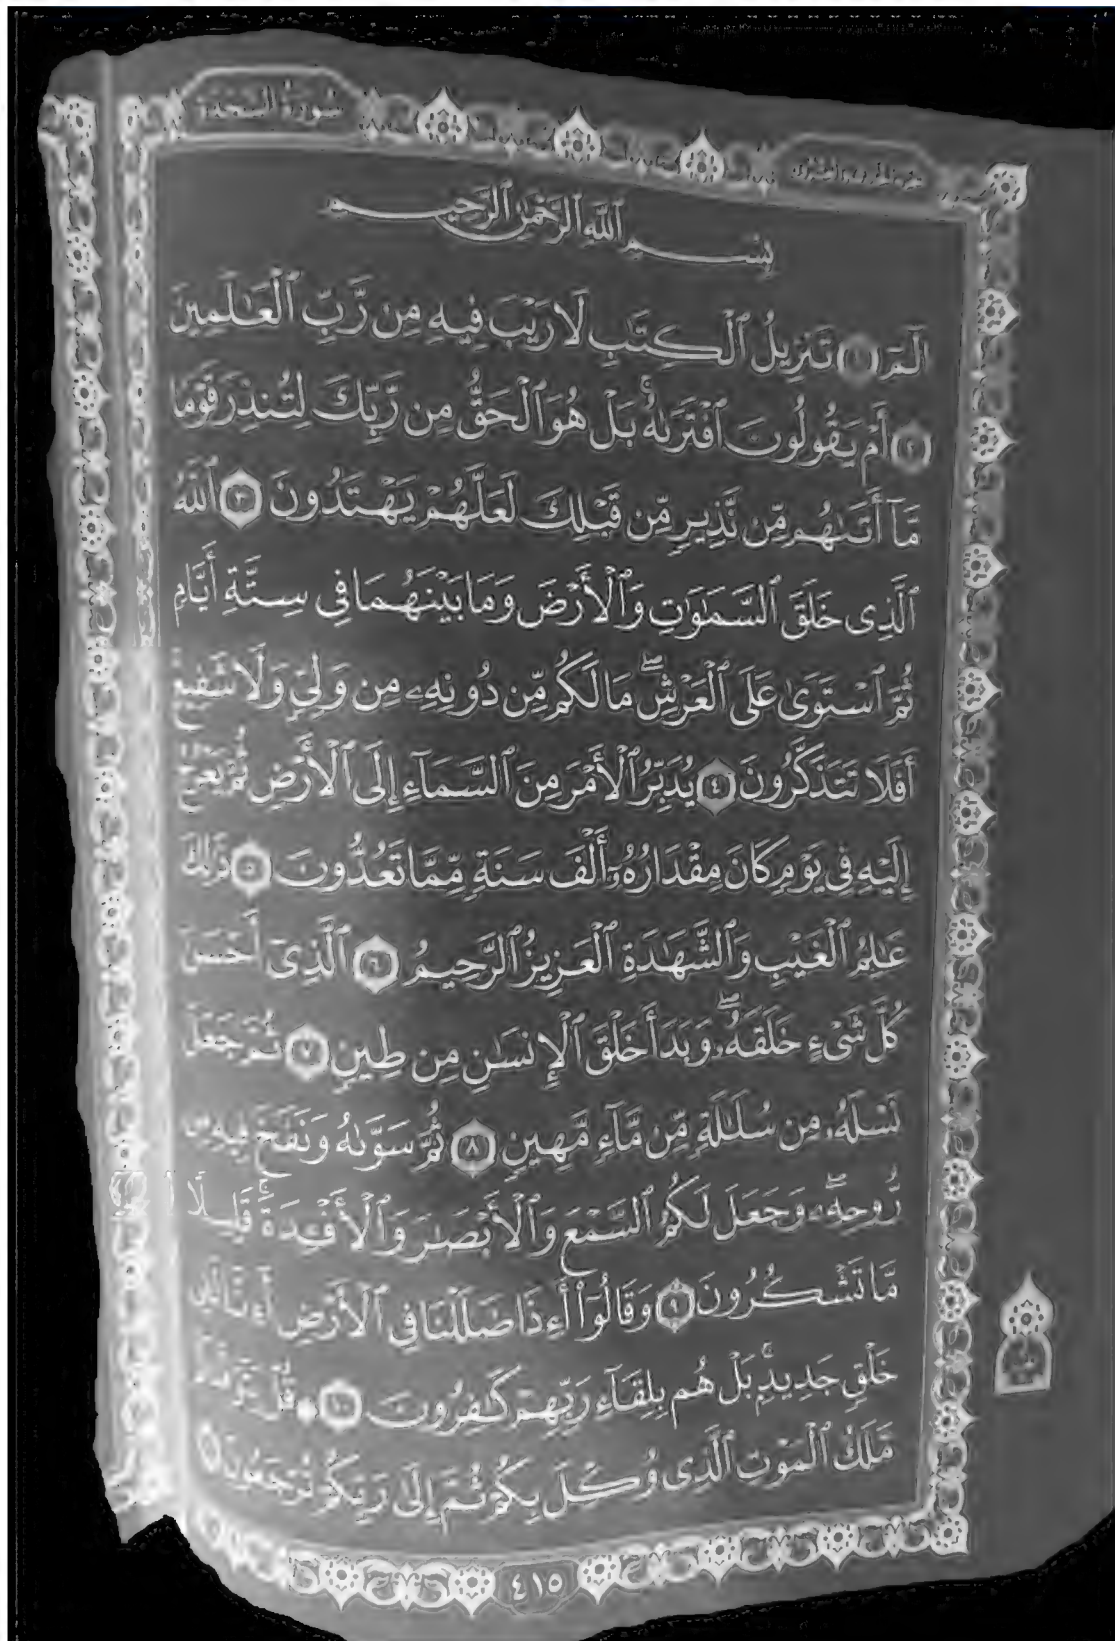 سُورَةُ السَّجْدَةِ
بِسْمِ ٱللَّهِ ٱلرَّحْمَٰنِ ٱلرَّحِيمِ
الٓمٓ ١ تَنزِيلُ ٱلْكِتَٰبِ لَا رَيْبَ فِيهِ مِن رَّبِّ ٱلْعَٰلَمِينَ
٢ أَمْ يَقُولُونَ ٱفْتَرَىٰهُ ۚ بَلْ هُوَ ٱلْحَقُّ مِن رَّبِّكَ لِتُنذِرَ قَوْمًا
مَّآ أَتَىٰهُم مِّن نَّذِيرٍ مِّن قَبْلِكَ لَعَلَّهُمْ يَهْتَدُونَ ٣ ٱللَّهُ
ٱلَّذِى خَلَقَ ٱلسَّمَٰوَٰتِ وَٱلْأَرْضَ وَمَا بَيْنَهُمَا فِى سِتَّةِ أَيَّامٍ
ثُمَّ ٱسْتَوَىٰ عَلَى ٱلْعَرْشِ ۖ مَا لَكُم مِّن دُونِهِۦ مِن وَلِىٍّ وَلَا شَفِيعٍ ۚ
أَفَلَا تَتَذَكَّرُونَ ٤ يُدَبِّرُ ٱلْأَمْرَ مِنَ ٱلسَّمَآءِ إِلَى ٱلْأَرْضِ ثُمَّ يَعْرُجُ
إِلَيْهِ فِى يَوْمٍ كَانَ مِقْدَارُهُۥٓ أَلْفَ سَنَةٍ مِّمَّا تَعُدُّونَ ٥ ذَٰلِكَ
عَٰلِمُ ٱلْغَيْبِ وَٱلشَّهَٰدَةِ ٱلْعَزِيزُ ٱلرَّحِيمُ ٦ ٱلَّذِىٓ أَحْسَنَ
كُلَّ شَىْءٍ خَلَقَهُۥ ۖ وَبَدَأَ خَلْقَ ٱلْإِنسَٰنِ مِن طِينٍ ٧ ثُمَّ جَعَلَ
نَسْلَهُۥ مِن سُلَٰلَةٍ مِّن مَّآءٍ مَّهِينٍ ٨ ثُمَّ سَوَّىٰهُ وَنَفَخَ فِيهِ مِن
رُّوحِهِۦ ۖ وَجَعَلَ لَكُمُ ٱلسَّمْعَ وَٱلْأَبْصَٰرَ وَٱلْأَفْـِٔدَةَ ۚ قَلِيلًا
مَّا تَشْكُرُونَ ٩ وَقَالُوٓا۟ أَءِذَا ضَلَلْنَا فِى ٱلْأَرْضِ أَءِنَّا لَفِى
خَلْقٍ جَدِيدٍۭ ۚ بَلْ هُم بِلِقَآءِ رَبِّهِمْ كَٰفِرُونَ ١٠ قُلْ يَتَوَفَّىٰكُم
مَّلَكُ ٱلْمَوْتِ ٱلَّذِى وُكِّلَ بِكُمْ ثُمَّ إِلَىٰ رَبِّكُمْ تُرْجَعُونَ ١١
٤١٥